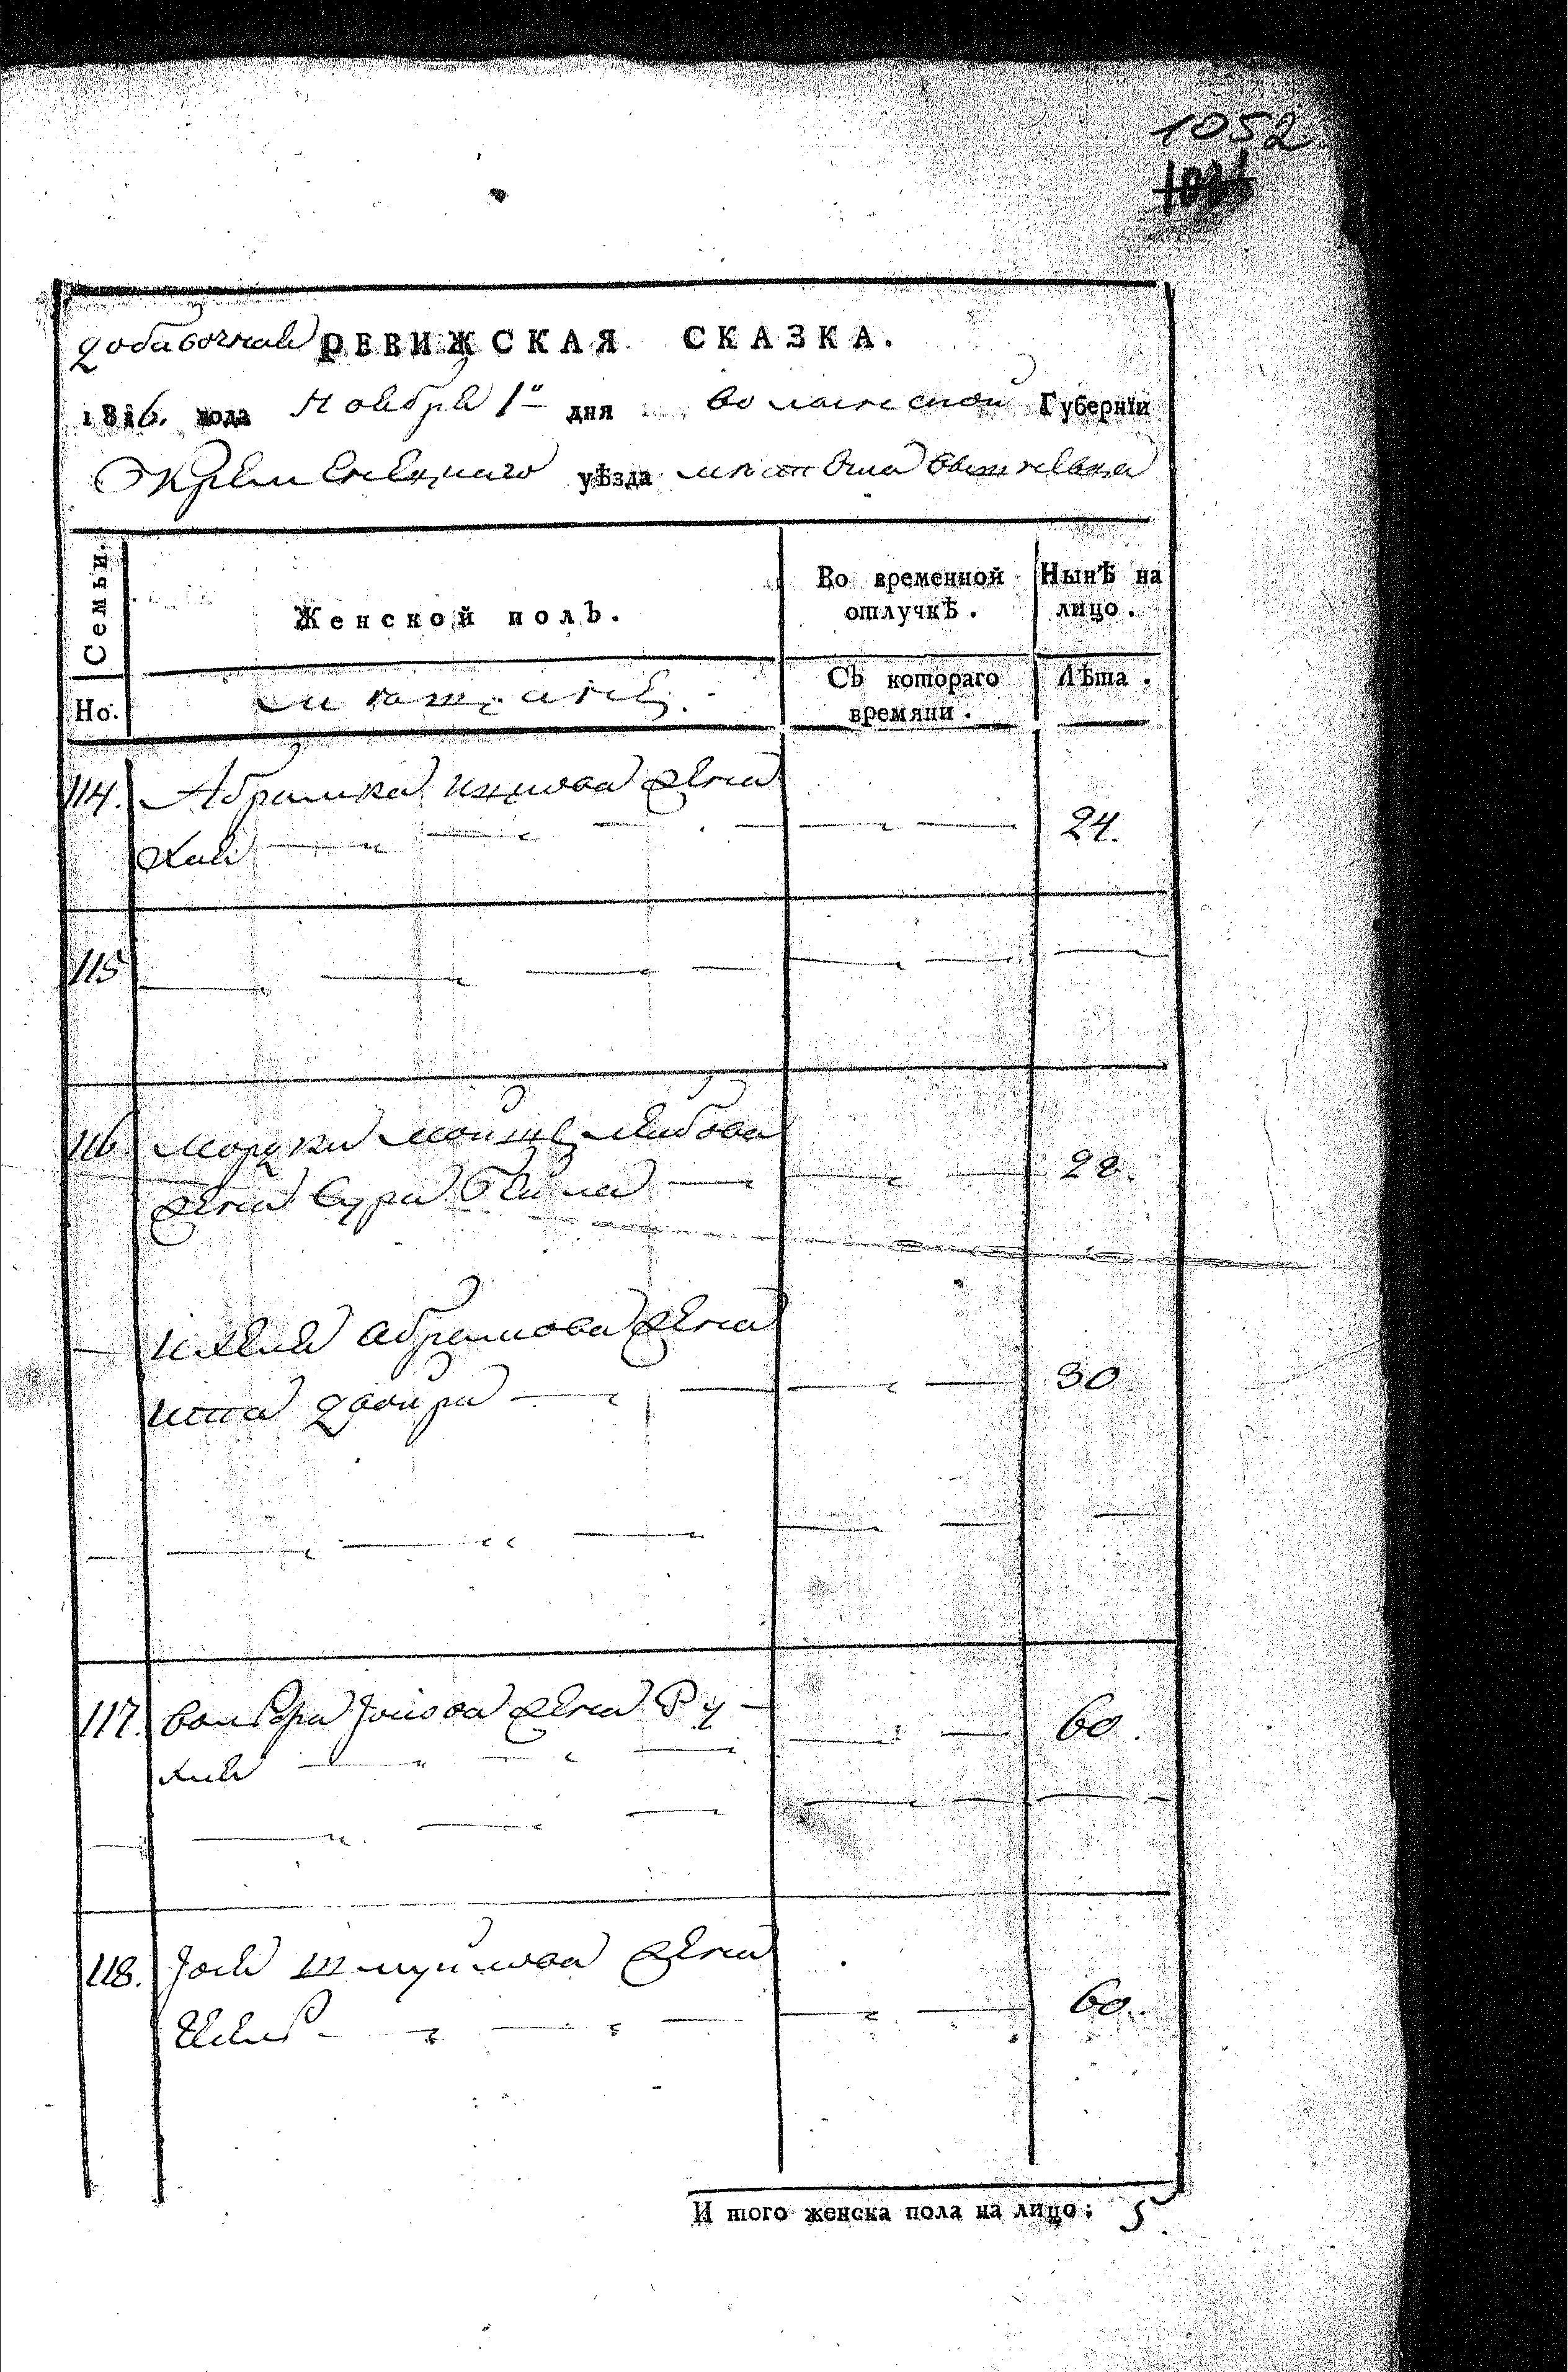 1052
добавочная РЕВИЖСКАЯ СКАЗКА.
1816. года Ноября 1го дня Волынской Губернїи
Кременецкаго уѣзда
Семьи.
Женской полъ.
Во временной
отлучкѣ.
Нынѣ на
лицо.
Но.
мѣщане
Съ котораго
времяни.
Лѣта.
114. Абрамка Ицкова жена
Хая 24.
115
116 Мордки Мошка Лейбова
жена Сура Бейла 28.
Ихеля Абрамова жена
двойра 30
117. жена Ру-
хля 60.
118. Іося Шмуйлова жена
60.
И того женска пола на лицо: 5